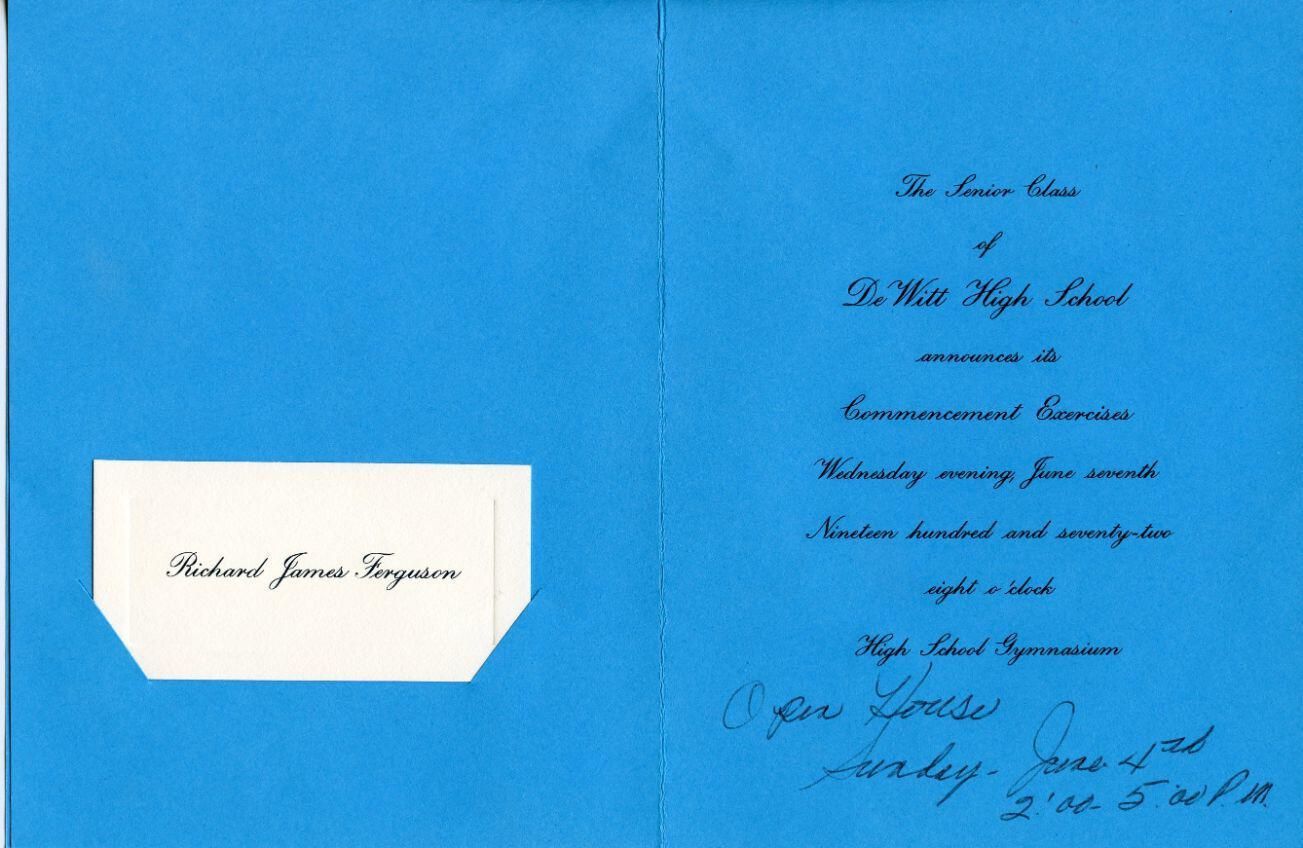 Richard James Ferguson
The Senior Class
of
DeWitt High School
announces its
Commencement Exercises
Wednesday evening, June seventh
Nineteen hundred and seventy-two
eight o'clock
High School Gymnasium
Open House
Sunday - June 4th
2:00 - 5:00 P.M.